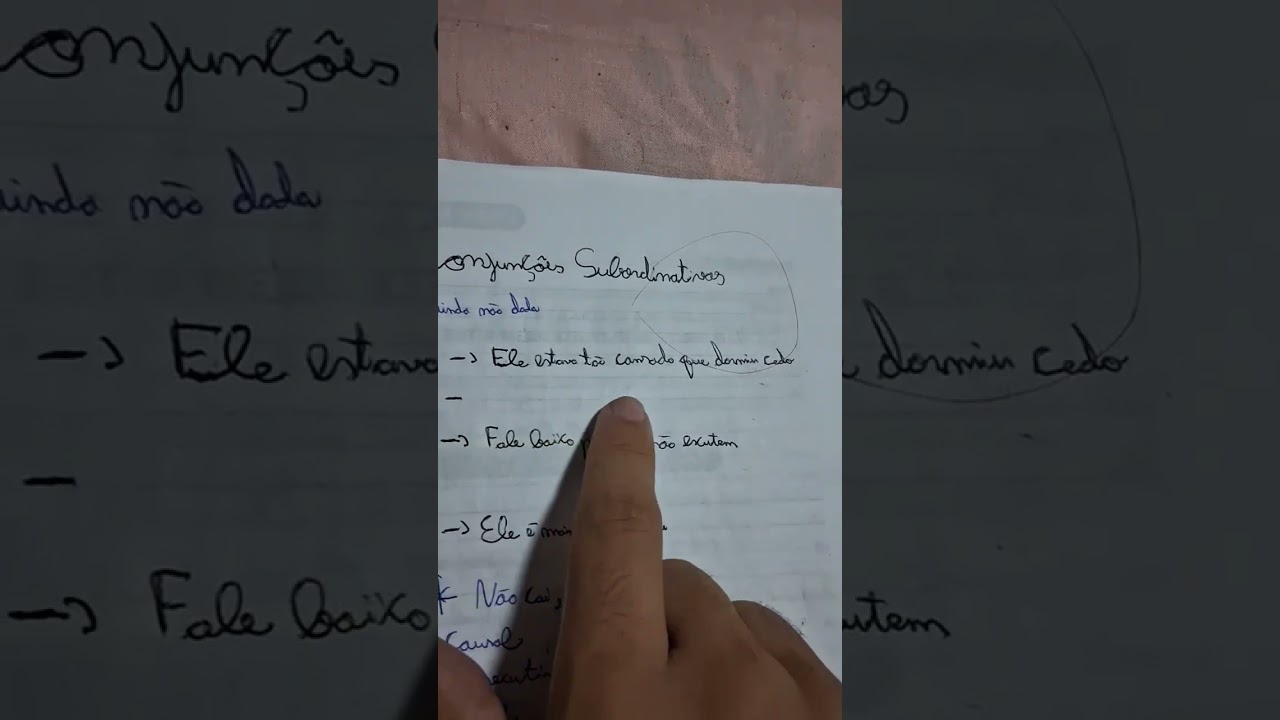 onjunções Subordinativas
uindo não dada
→ Ele estava tão cansado que dormiu cedo
–
→ Fale baixo não exutem
→ Ele é
* Não cai,
Causal